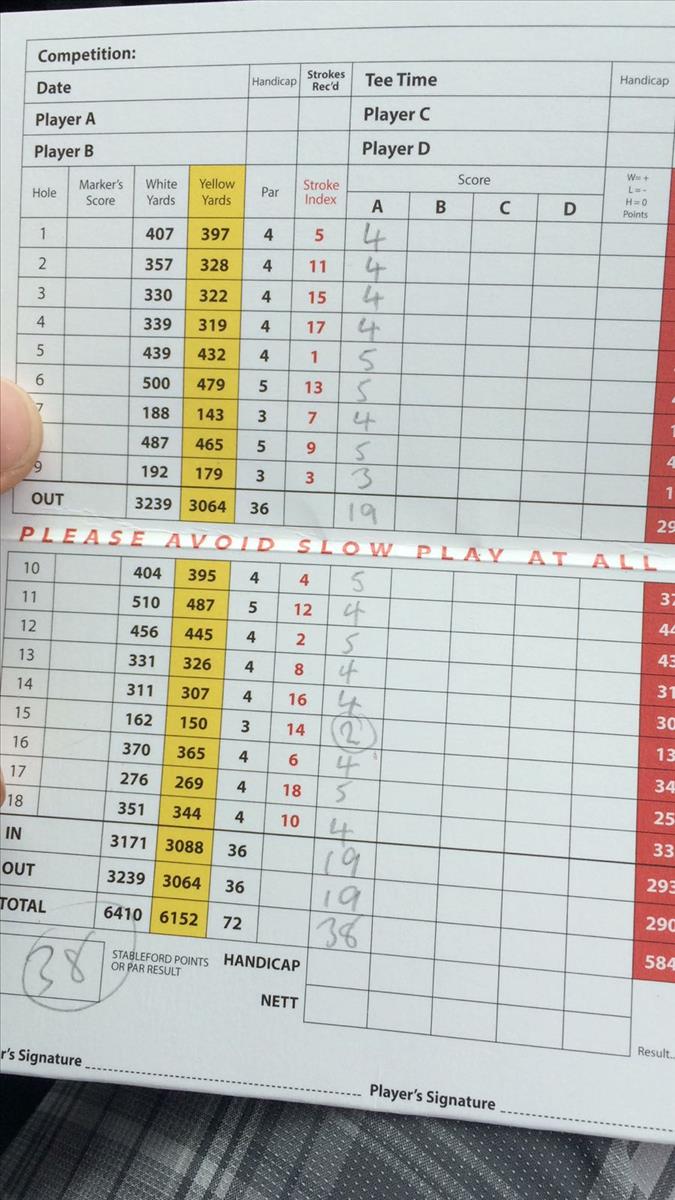 Competition:
Date Handicap Strokes Rec'd Tee Time Handicap
Player A Player C
Player B Player D
Hole Marker's Score White Yards Yellow Yards Par Stroke Index Score W=+ L=- H=0 Points
A B C D
1 407 397 4 5 4
2 357 328 4 11 4
3 330 322 4 15 4
4 339 319 4 17 4
5 439 432 4 1 5
6 500 479 5 13 5
7 188 143 3 7 4
487 465 5 9 5
9 192 179 3 3 3
OUT 3239 3064 36 19 29
PLEASE AVOID SLOW PLAY AT ALL
10 404 395 4 4 5 37
11 510 487 5 12 4 44
12 456 445 4 2 5 43
13 331 326 4 8 4 31
14 311 307 4 16 4 30
15 162 150 3 14 2 13
16 370 365 4 6 4 34
17 276 269 4 18 5 25
18 351 344 4 10 4 33
IN 3171 3088 36 19 293
OUT 3239 3064 36 19 290
TOTAL 6410 6152 72 38 584
38 STABLEFORD POINTS OR PAR RESULT HANDICAP
NETT
Result
r's Signature Player's Signature